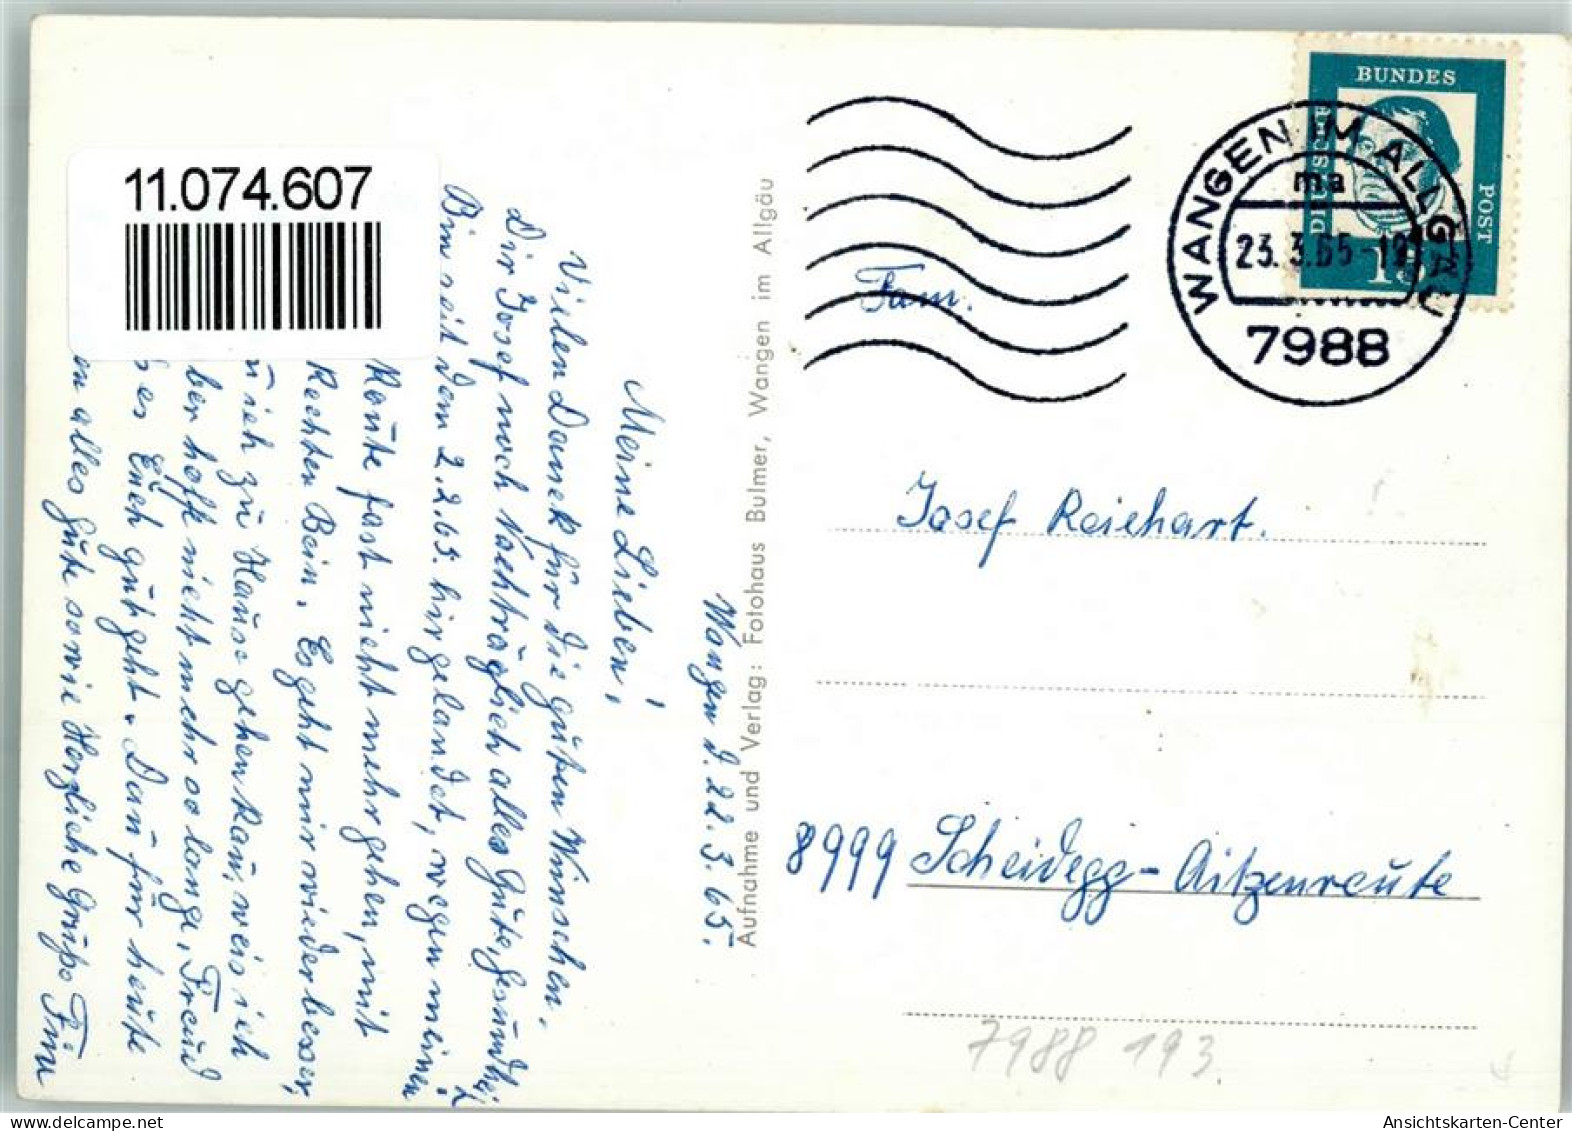 11.074.607
Wangen d. 22.3.65.
Meine Lieben,
Vielen Danek für die guten Wünschen.
Dir Josef noch Nachträglich alles Gute, Gesundheit
Bin seit dem 2.2.65. hir gelandet, wegen meinen
Konte fast nicht mehr gehen, mit
Rechten Bein. Es geht mir wieder besser,
ich zu Hause gehen kan, weis ich
ber hoffe nicht mehr so lange. Freud
es Euch gut geht. Dan für heute
en alles Gute sowie Herzliche Grüße
Aufnahme und Verlag: Fotohaus Bulmer, Wangen im Allgäu
DEUTSCHE BUNDES POST
15
WANGEN IM ALLGÄU
ma
23.3.65-19
7988
Fam.
Josef Reichart.
8999 Scheidegg-Aitzenreute
7988 193
Ansichtskarten-Center